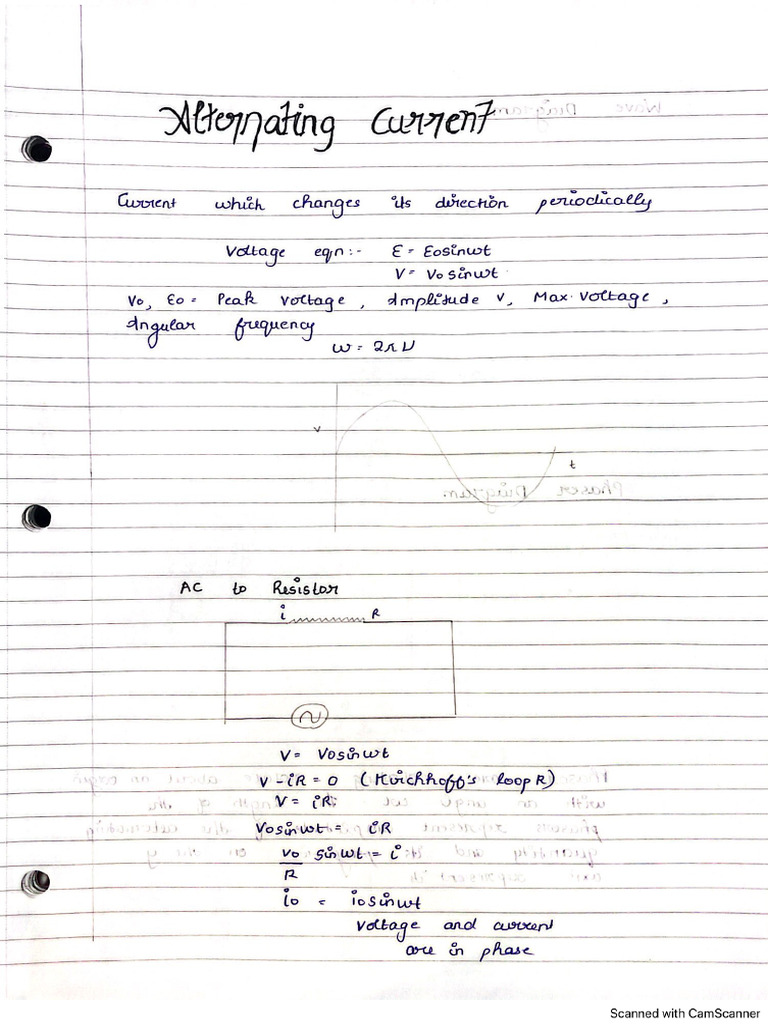 Alternating Current
Current which changes its direction periodically
Voltage eqn:- Ɛ = Ɛosinwt
V = Vosinwt
Vo, Ɛo = Peak Voltage, Amplitude V, Max. Voltage,
Angular frequency
ω = 2πν
V
t
AC to Resistor
i R
~
V = Vosinwt
V - iR = 0 (Kirchhoff's loop R)
V = iR
Vosinwt = iR
Vo/R sinwt = i
io = iosinwt
Voltage and current
are in phase
Scanned with CamScanner